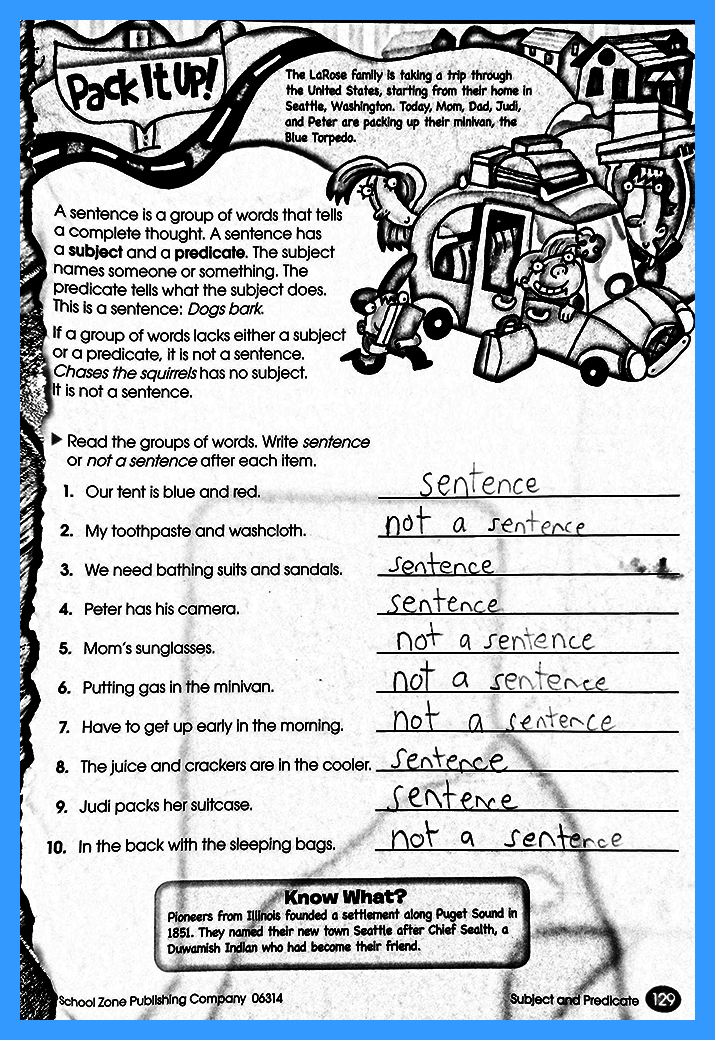 Pack It Up!
The LaRose family is taking a trip through
the United States, starting from their home in
Seattle, Washington. Today, Mom, Dad, Judi,
and Peter are packing up their minivan, the
Blue Torpedo.
A sentence is a group of words that tells
a complete thought. A sentence has
a subject and a predicate. The subject
names someone or something. The
predicate tells what the subject does.
This is a sentence: Dogs bark.
If a group of words lacks either a subject
or a predicate, it is not a sentence.
Chases the squirrels has no subject.
It is not a sentence.
▶ Read the groups of words. Write sentence
or not a sentence after each item.
1. Our tent is blue and red. sentence
2. My toothpaste and washcloth. not a sentence
3. We need bathing suits and sandals. sentence
4. Peter has his camera. sentence
5. Mom's sunglasses. not a sentence
6. Putting gas in the minivan. not a sentence
7. Have to get up early in the morning. not a sentence
8. The juice and crackers are in the cooler. sentence
9. Judi packs her suitcase. sentence
10. In the back with the sleeping bags. not a sentence
Know What?
Pioneers from Illinois founded a settlement along Puget Sound in
1851. They named their new town Seattle after Chief Sealth, a
Duwamish Indian who had become their friend.
School Zone Publishing Company 06314
Subject and Predicate 129